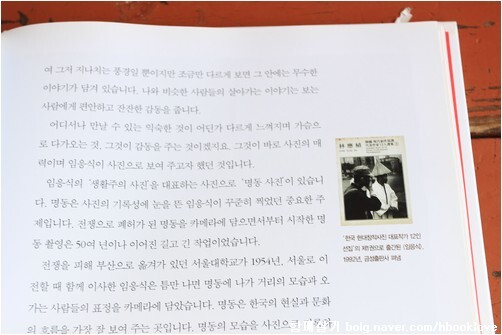 여 그저 지나치는 풍경일 뿐이지만 조금만 다르게 보면 그 안에는 무수한
이야기가 담겨 있습니다. 나와 비슷한 사람들의 살아가는 이야기는 보는
사람에게 편안하고 잔잔한 감동을 줍니다.
어디서나 만날 수 있는 익숙한 것이 어딘가 다르게 느껴지며 가슴으
로 다가오는 것, 그것이 감동을 주는 것이겠지요. 그것이 바로 사진의 매
력이며 임응식이 사진으로 보여 주고자 했던 것입니다.
임응식의 '생활주의 사진'을 대표하는 사진으로 '명동 사진'이 있습니
다. 명동은 사진의 기록성에 눈을 뜬 임응식이 꾸준히 찍었던 중요한 주
제입니다. 전쟁으로 폐허가 된 명동을 카메라에 담으면서부터 시작한 명
동 촬영은 50여 년이나 이어진 길고 긴 작업이었습니다.
전쟁을 피해 부산으로 옮겨가 있던 서울대학교가 1954년, 서울로 이
전할 때 함께 이사한 임응식은 틈만 나면 명동에 나가 거리의 모습과 오
가는 사람들의 표정을 카메라에 담았습니다. 명동은 한국의 현실과 문화
의 흐름을 가장 잘 보여 주는 곳입니다. 명동의 모습을 사진으로
林應植
'한국 현대창작사진 대표작가 12인
선집'의 제1권으로 출간된 《임응식》,
1992년, 금성출판사 펴냄
blog.naver.com/hbooklove